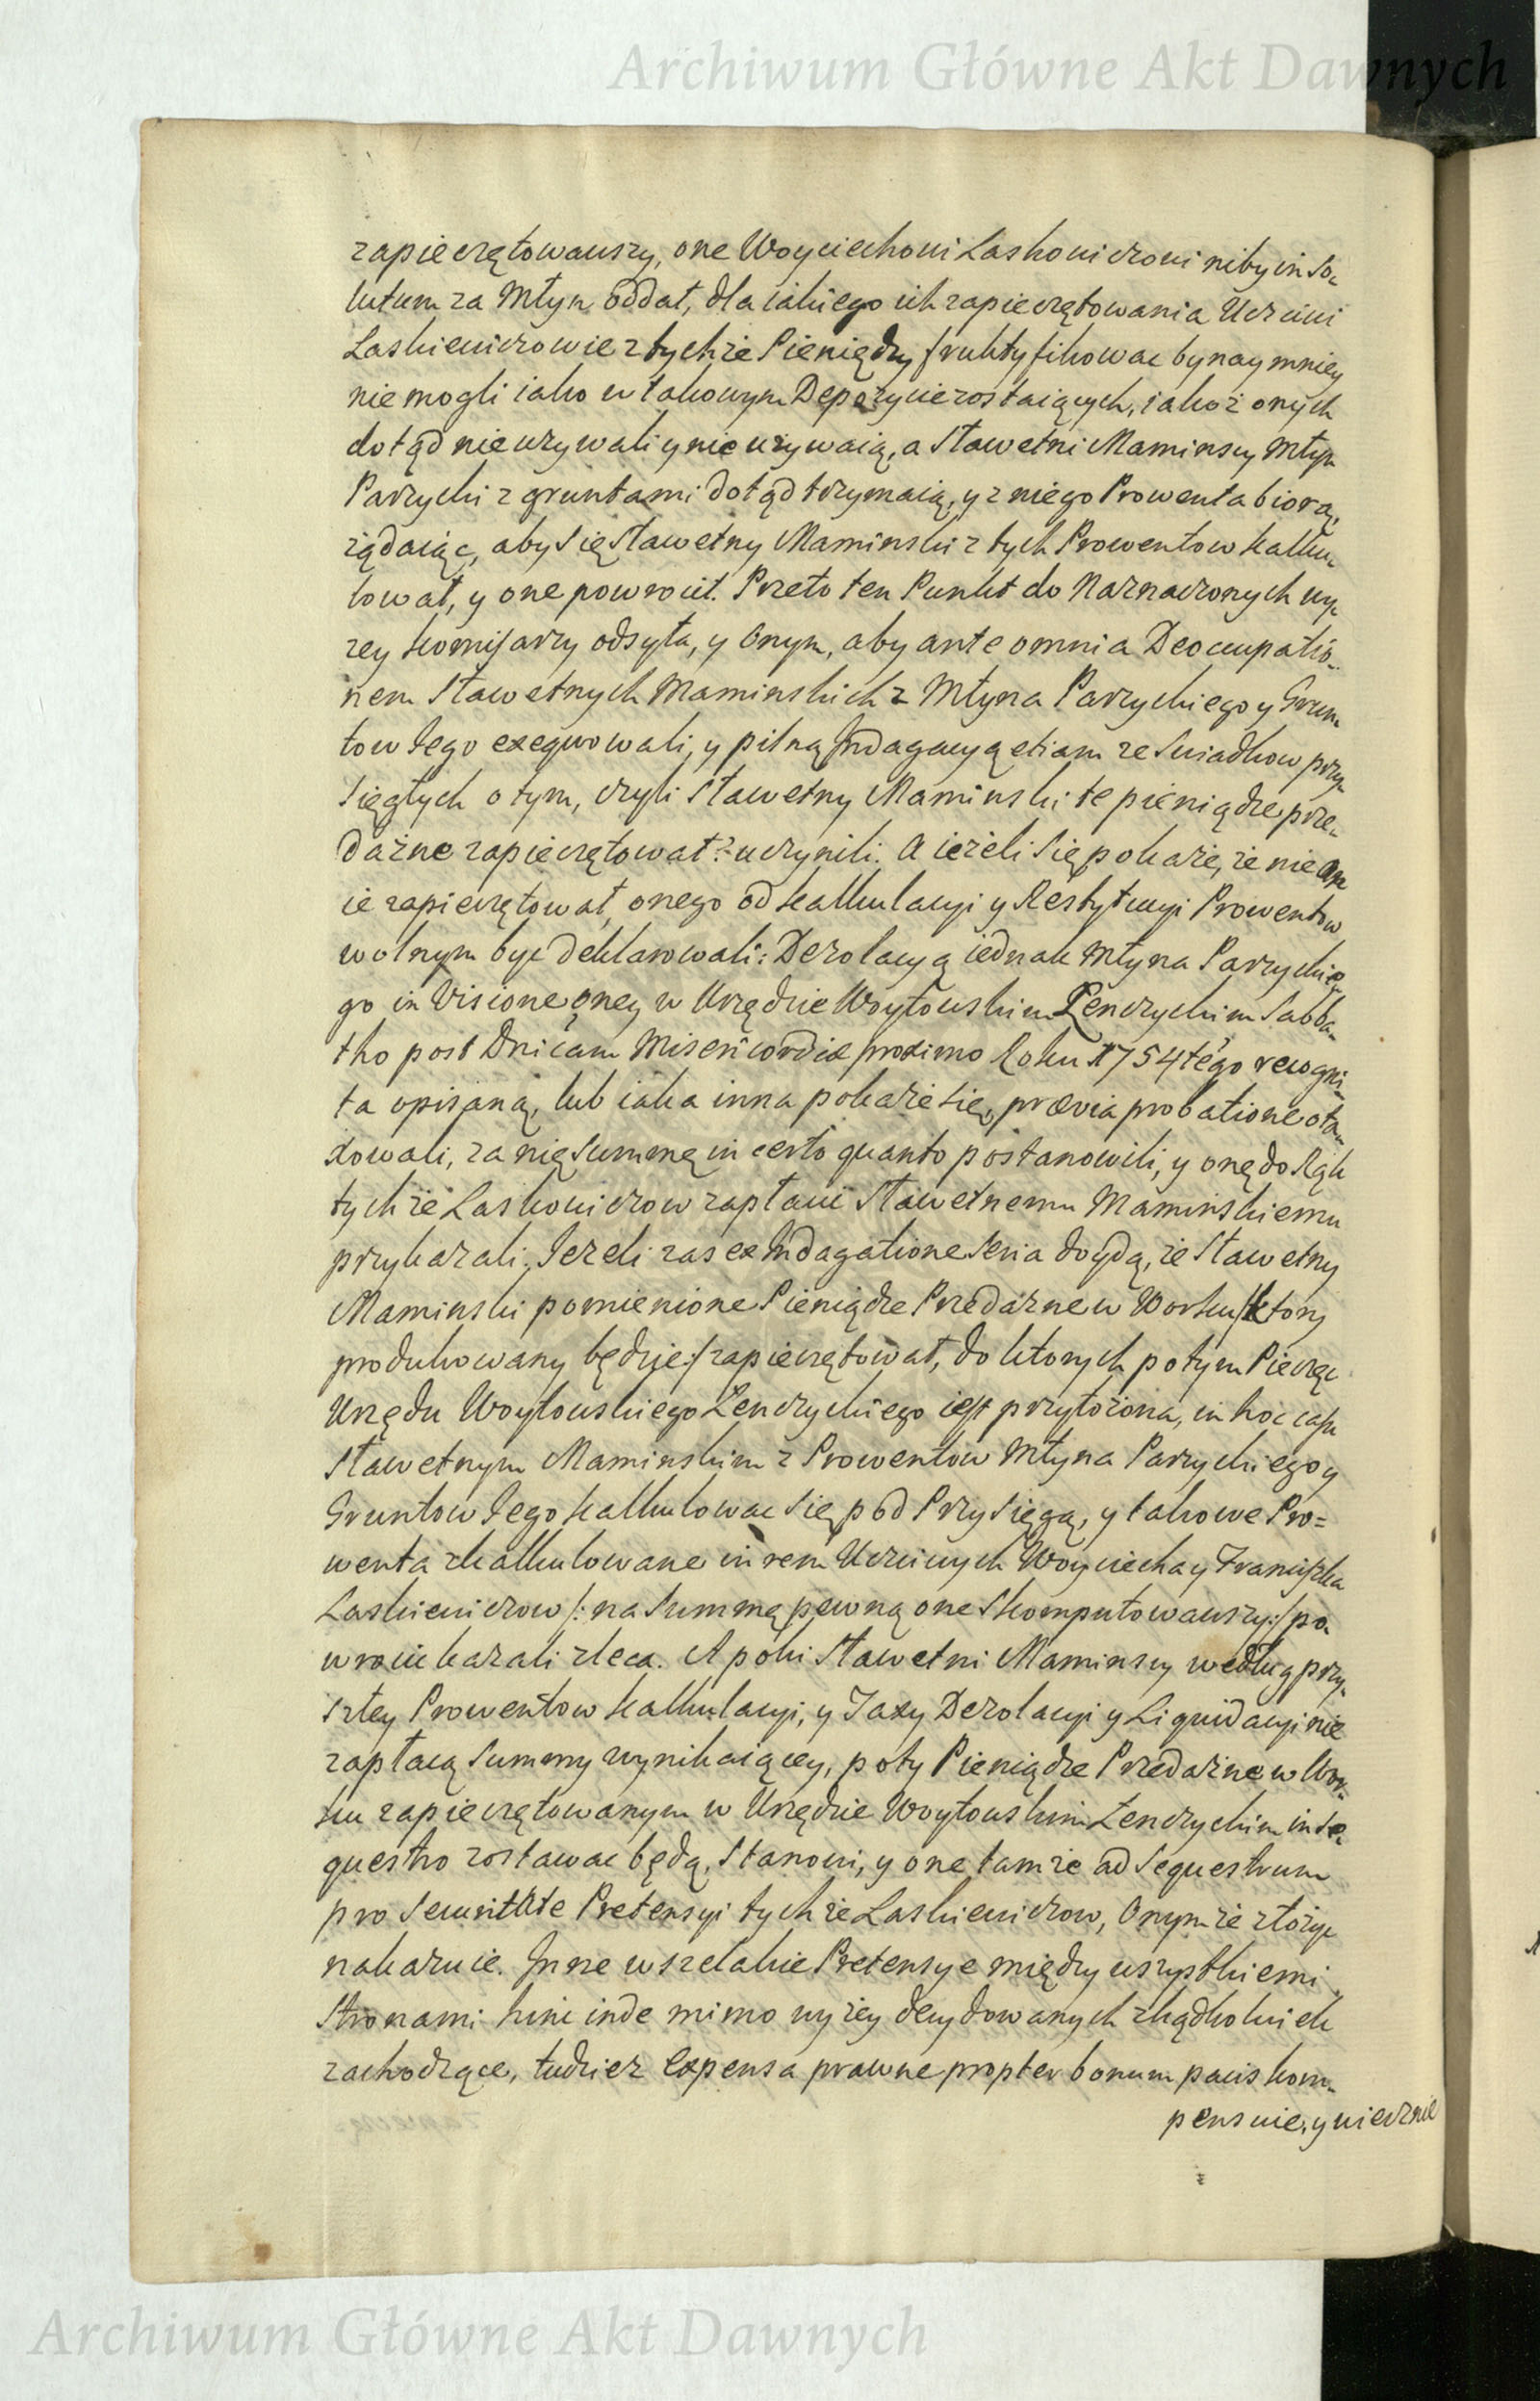 Archiwum Główne Akt Dawnych
zapieczętowawszy, one Woyciechowi Laskowiczowi niby in so-
lutum za Młyn oddał, dla iakiego ich zapieczętowania Uczciwi
Laskiewiczowie z tychże Pieniędzy fruktyfikowac bynaymniey
nie mogli iako w takowym Depozycie zostaiących, iakoż onych
dotąd nie uzywali y nie uzywaią, a Sławetni Maminscy Młyn
Parzycki z gruntami dotąd trzymaią, y z niego Prowenta biorą,
żądaiąc, aby się Sławetny Maminski z tych Prowentow kalku-
lował, y one powrocił. Przeto ten Punkt do Naznaczonych wy-
zey Komisarzy odsyła, y Onym, aby ante omnia Deoccupatio-
nem Sławetnych Maminskich z Młyna Parzyckiego y Grun-
tow Jego exequowali, y pilną Indagacyą etiam ze Swiadkow przy-
sięgłych o tym, czyli Sławetny Maminski te pieniądze prze-
dażne zapieczętował? uczynili. A ieżeli się pokaże, że nie on
ie zapieczętował, onego od kalkulacyi y Restytucyi Prowentow
wolnym byc deklarowali: Dezolacyą iednak Młyna Parzyckie-
go in Visione oney w Urzędzie Woytowskim Łenczyckim Sabba-
tho post Dnicam Misericordiæ proximo Roku 1754tego recogni-
ta opisaną, lub iaka inna pokaże się, prævia probatione ota-
xowali, za nię Summę in certo quanto postanowili, y onę do Rąk
tychże Laskowiczow zapłacic Sławetnemu Maminskiemu
przykazali. Jeżeli zas ex Indagatione Seria doydą, że Sławetny
Maminski pomienione Pieniądze Przedażne w Worku /: ktory
produkowany będzie :/ zapieczętował, do ktorych potym Pieczęc
Urzędu Woytowskiego Łenczyckiego iest przyłożona, in hoc casu
Sławetnym Maminskim z Prowentow Młyna Parzyckiego y
Gruntow Jego kalkulowac się pod Przysięgą, y takowe Pro=
wenta zkalkulowane in rem Uczciwych Woyciecha y Franciszka
Laskiewiczow /: na Summę pewną one skomputowawszy :/ po-
wrocic kazali zleca. A poki Sławetni Maminscy według przy-
szłey Prowentow kalkulacyi, y Taxy Dezolacyi y Liquidacyi nie
zapłacą Summy wynikaiącey, poty Pieniądze Przedażne w Wor-
ku zapieczętowanym w Urzędzie Woytowskim Łenczyckim in se-
questro zostawac będą, Stanowi, y one tamże ad Sequestrum
pro Securitate Pretensyi tychże Laskiewiczow, Onymże złożyc
nakazuie. Inne wszelakie Pretensye między wszystkiemi
Stronami hinc inde mimo wyżey decydowanych zkądkolwiek
zachodzące, tudzież Expensa prawne propter bonum pacis kom-
pensuie, y wiecznie
Archiwum Główne Akt Dawnych